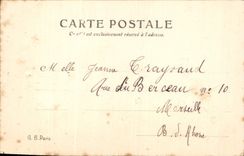 CARTE POSTALE
Ce côté est exclusivement réservé à l'adresse.
Melle Jeanne Traysand
Rue du Berceau nº 10
Marseille
B. d. Rhône
G. B. Paris